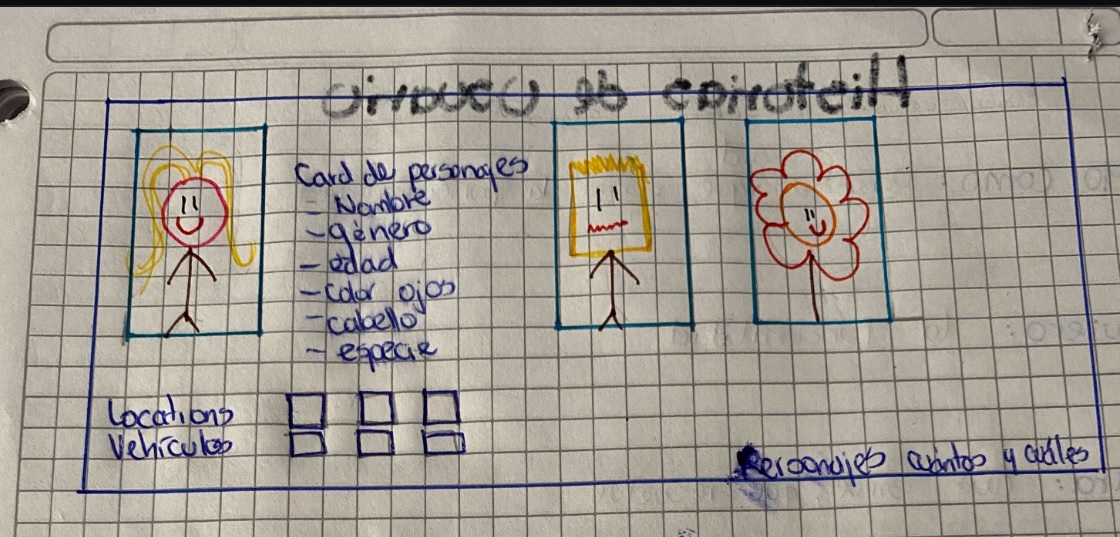 Historias de Usuario
Card de personajes
- Nombre
- género
- edad
- color ojos
- cabello
- especie
Locations
Vehículos
Personajes cuántos y cuáles